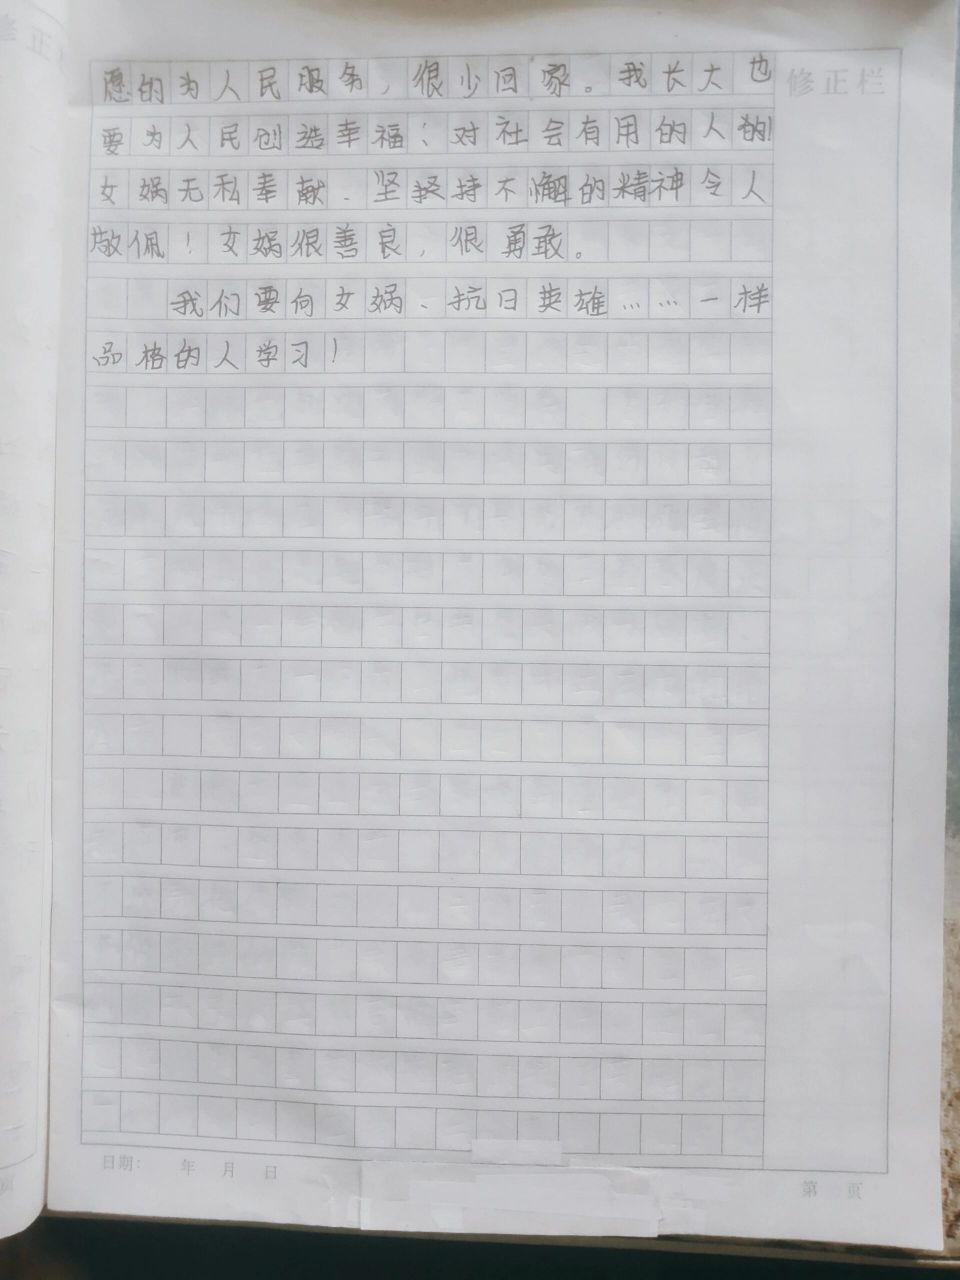 愿的为人民服务，很少回家。我长大也 修正栏
要为人民创造幸福；对社会有用的人的!
女娲无私奉献、坚持不懈的精神令人
敬佩！女娲很善良，很勇敢。
我们要向女娲、抗日英雄……一样
品格的人学习！
日期： 年 月 日 第 页